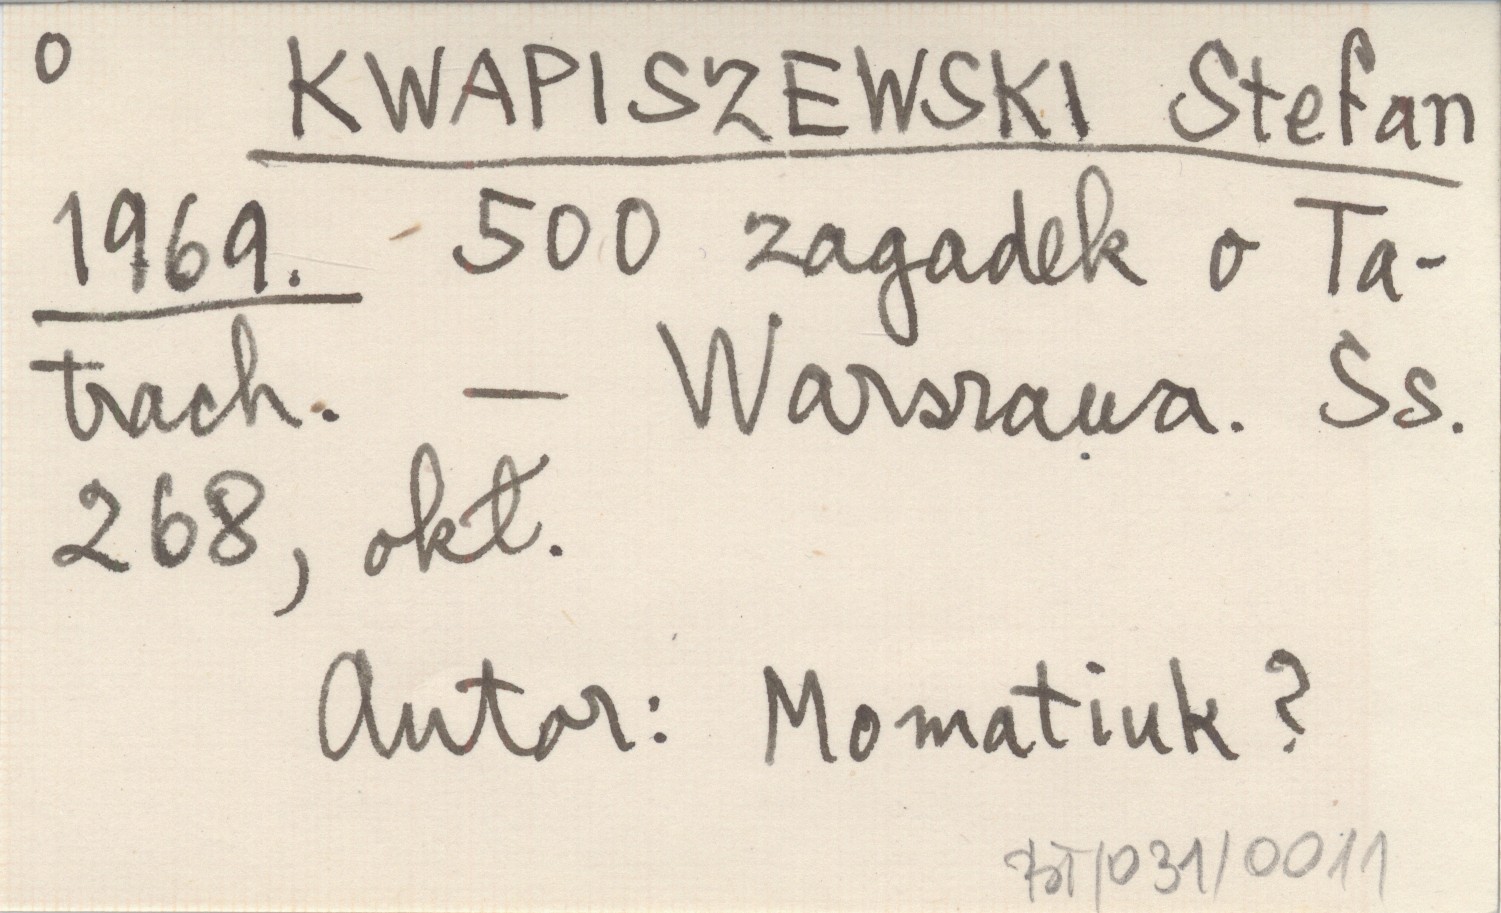 o KWAPISZEWSKI Stefan
1969. - 500 zagadek o Ta-
trach. — Warszawa. Ss.
268, okł.
Autor: Momatiuk?
/031/0011